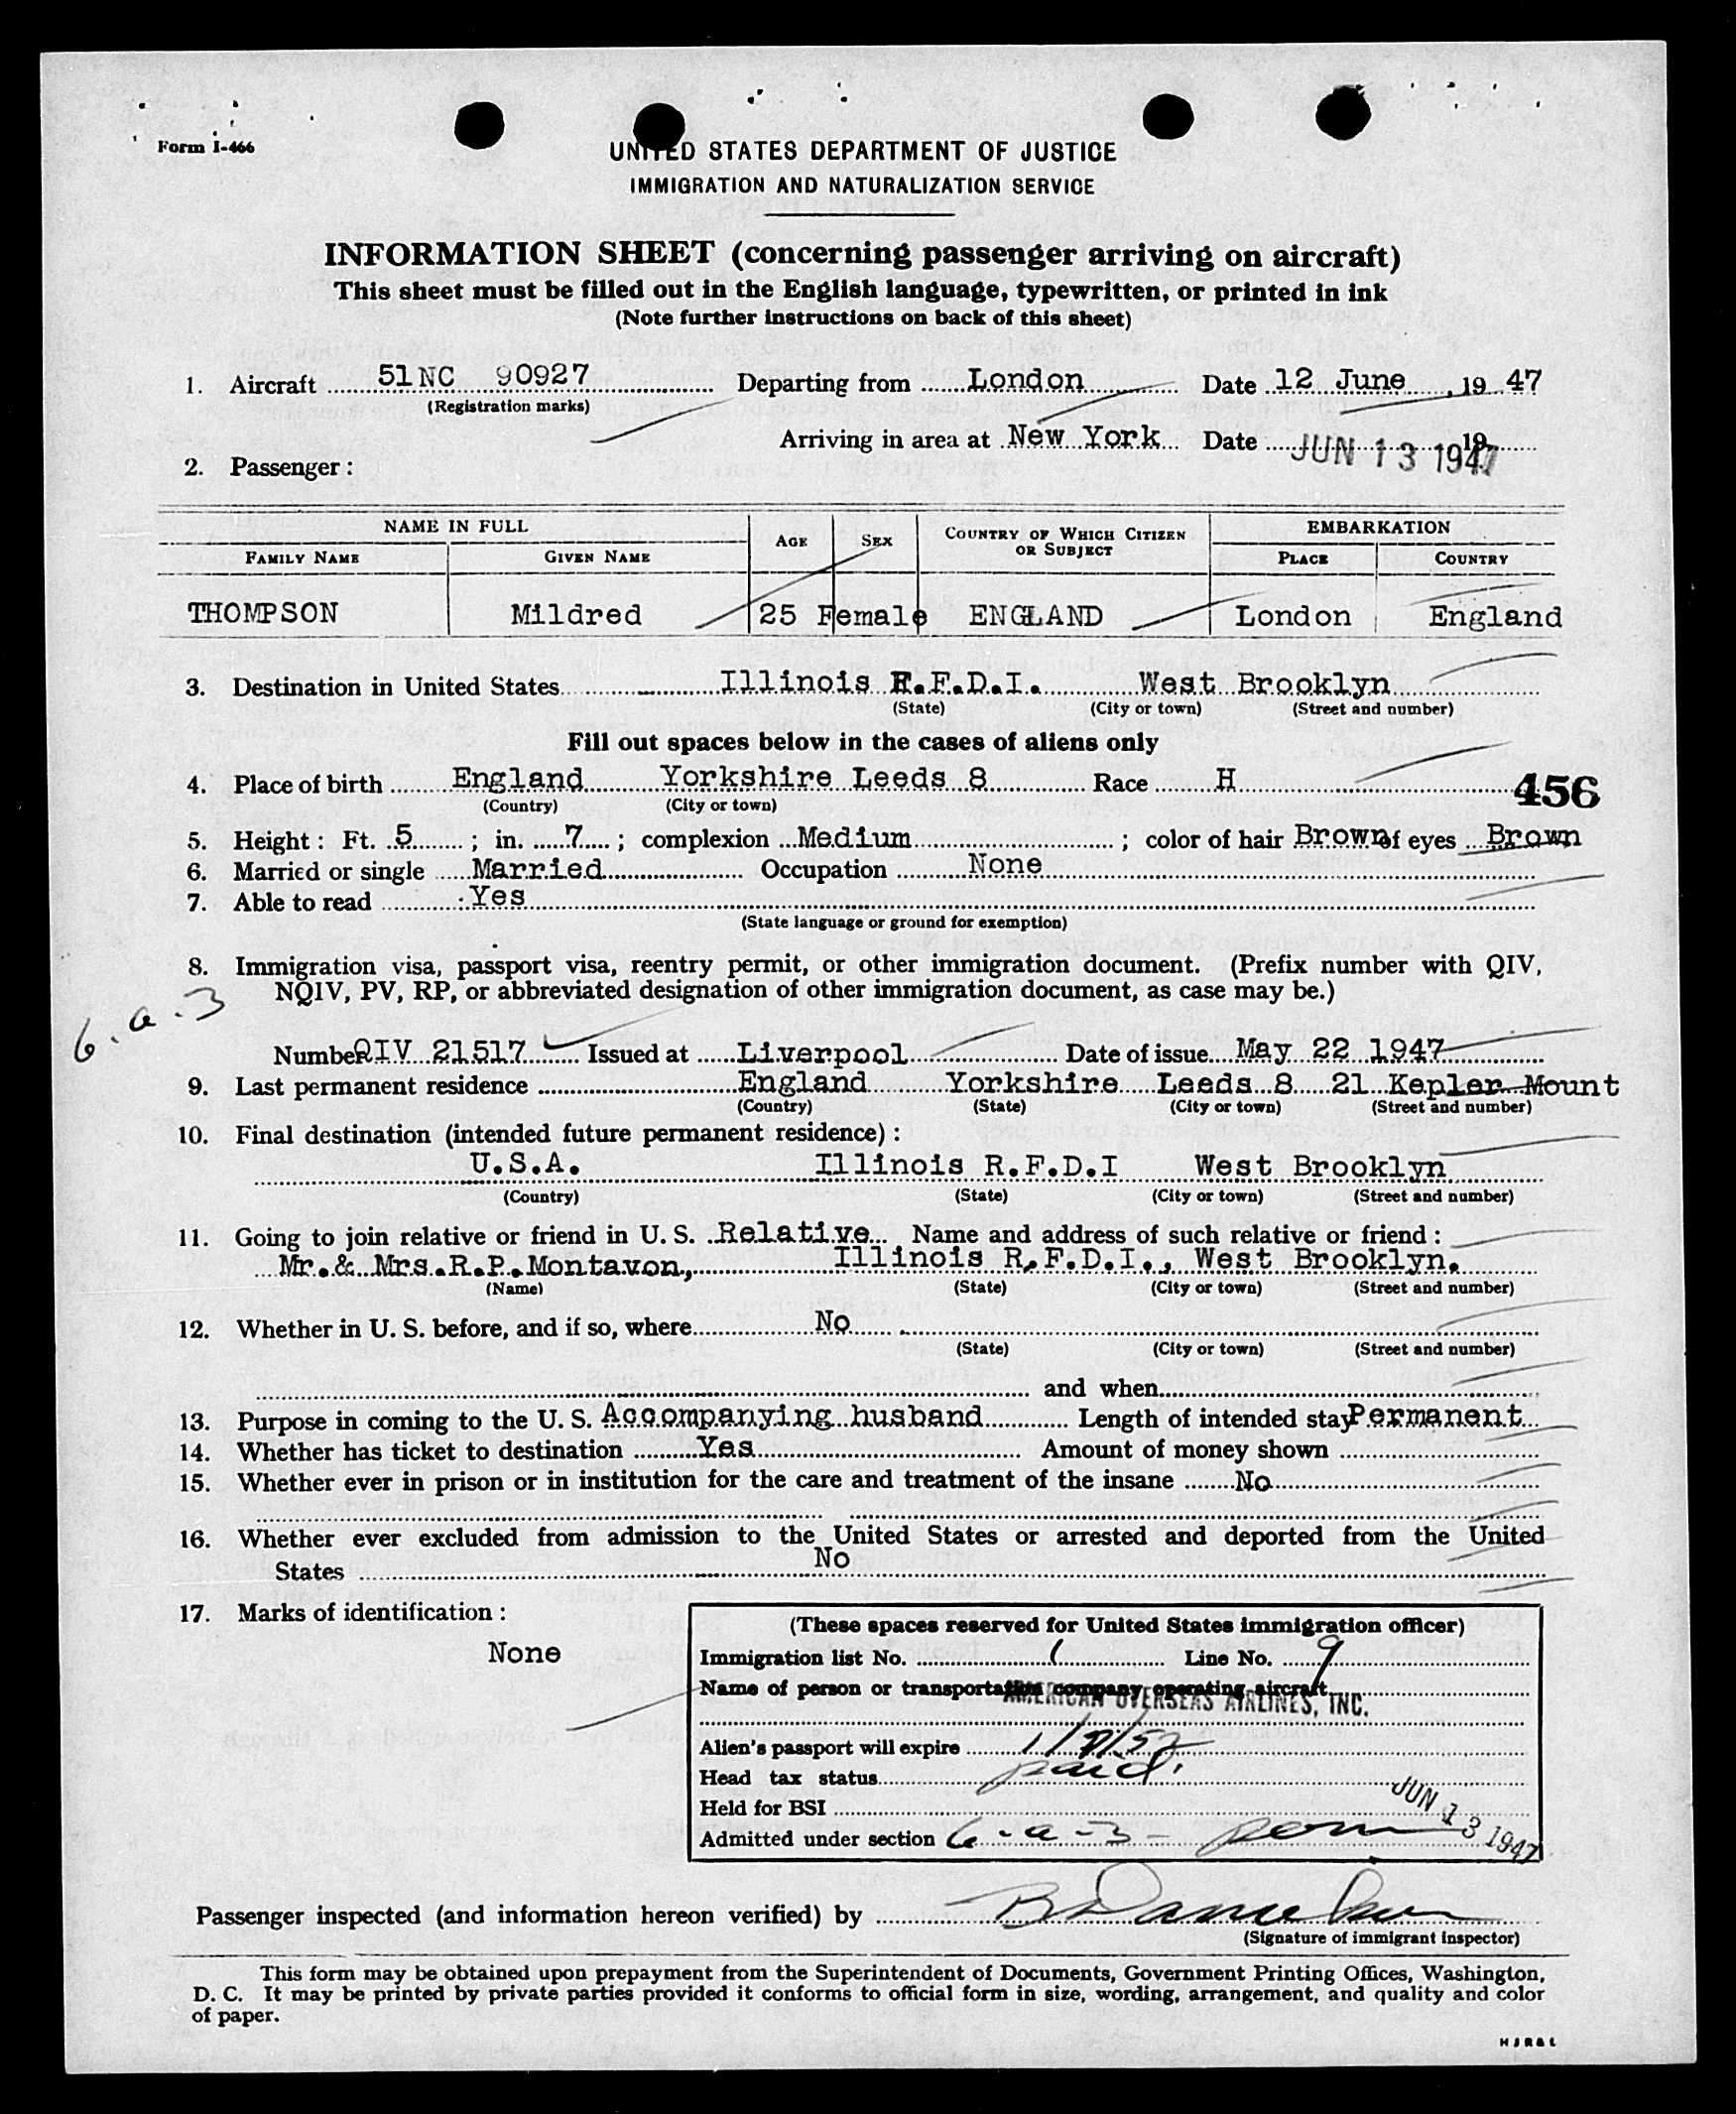 Form I-466
UNITED STATES DEPARTMENT OF JUSTICE
IMMIGRATION AND NATURALIZATION SERVICE
INFORMATION SHEET (concerning passenger arriving on aircraft)
This sheet must be filled out in the English language, typewritten, or printed in ink
(Note further instructions on back of this sheet)
1. Aircraft 51NC 90927 Departing from London Date 12 June, 19 47
(Registration marks)
Arriving in area at New York Date JUN 13 1947 19
2. Passenger:
NAME IN FULL AGE SEX COUNTRY OF WHICH CITIZEN OR SUBJECT EMBARKATION
FAMILY NAME GIVEN NAME PLACE COUNTRY
THOMPSON Mildred 25 Female ENGLAND London England
3. Destination in United States Illinois R.F.D.I. West Brooklyn
(State) (City or town) (Street and number)
Fill out spaces below in the cases of aliens only
4. Place of birth England Yorkshire Leeds 8 Race H 456
(Country) (City or town)
5. Height: Ft. 5; in. 7; complexion Medium; color of hair Brown of eyes Brown
6. Married or single Married Occupation None
7. Able to read Yes
(State language or ground for exemption)
8. Immigration visa, passport visa, reentry permit, or other immigration document. (Prefix number with QIV,
NQIV, PV, RP, or abbreviated designation of other immigration document, as case may be.)
6.a.3
Number QIV 21517 Issued at Liverpool Date of issue May 22 1947
9. Last permanent residence England Yorkshire Leeds 8 21 Kepler Mount
(Country) (State) (City or town) (Street and number)
10. Final destination (intended future permanent residence):
U.S.A. Illinois R.F.D.I West Brooklyn
(Country) (State) (City or town) (Street and number)
11. Going to join relative or friend in U. S. Relative Name and address of such relative or friend:
Mr.& Mrs.R.P.Montavon, Illinois R.F.D.I., West Brooklyn.
(Name) (State) (City or town) (Street and number)
12. Whether in U. S. before, and if so, where No
(State) (City or town) (Street and number)
and when
13. Purpose in coming to the U. S. Accompanying husband Length of intended stay Permanent
14. Whether has ticket to destination Yes Amount of money shown
15. Whether ever in prison or in institution for the care and treatment of the insane No
16. Whether ever excluded from admission to the United States or arrested and deported from the United
States No
17. Marks of identification:
None
(These spaces reserved for United States immigration officer)
Immigration list No. 1 Line No. 9
Name of person or transportation company operating aircraft
AMERICAN OVERSEAS AIRLINES, INC.
Alien's passport will expire
Head tax status paid.
Held for BSI
JUN 13 1947
Admitted under section 6-a-3- perm
Passenger inspected (and information hereon verified) by
(Signature of immigrant inspector)
This form may be obtained upon prepayment from the Superintendent of Documents, Government Printing Offices, Washington,
D. C. It may be printed by private parties provided it conforms to official form in size, wording, arrangement, and quality and color
of paper.